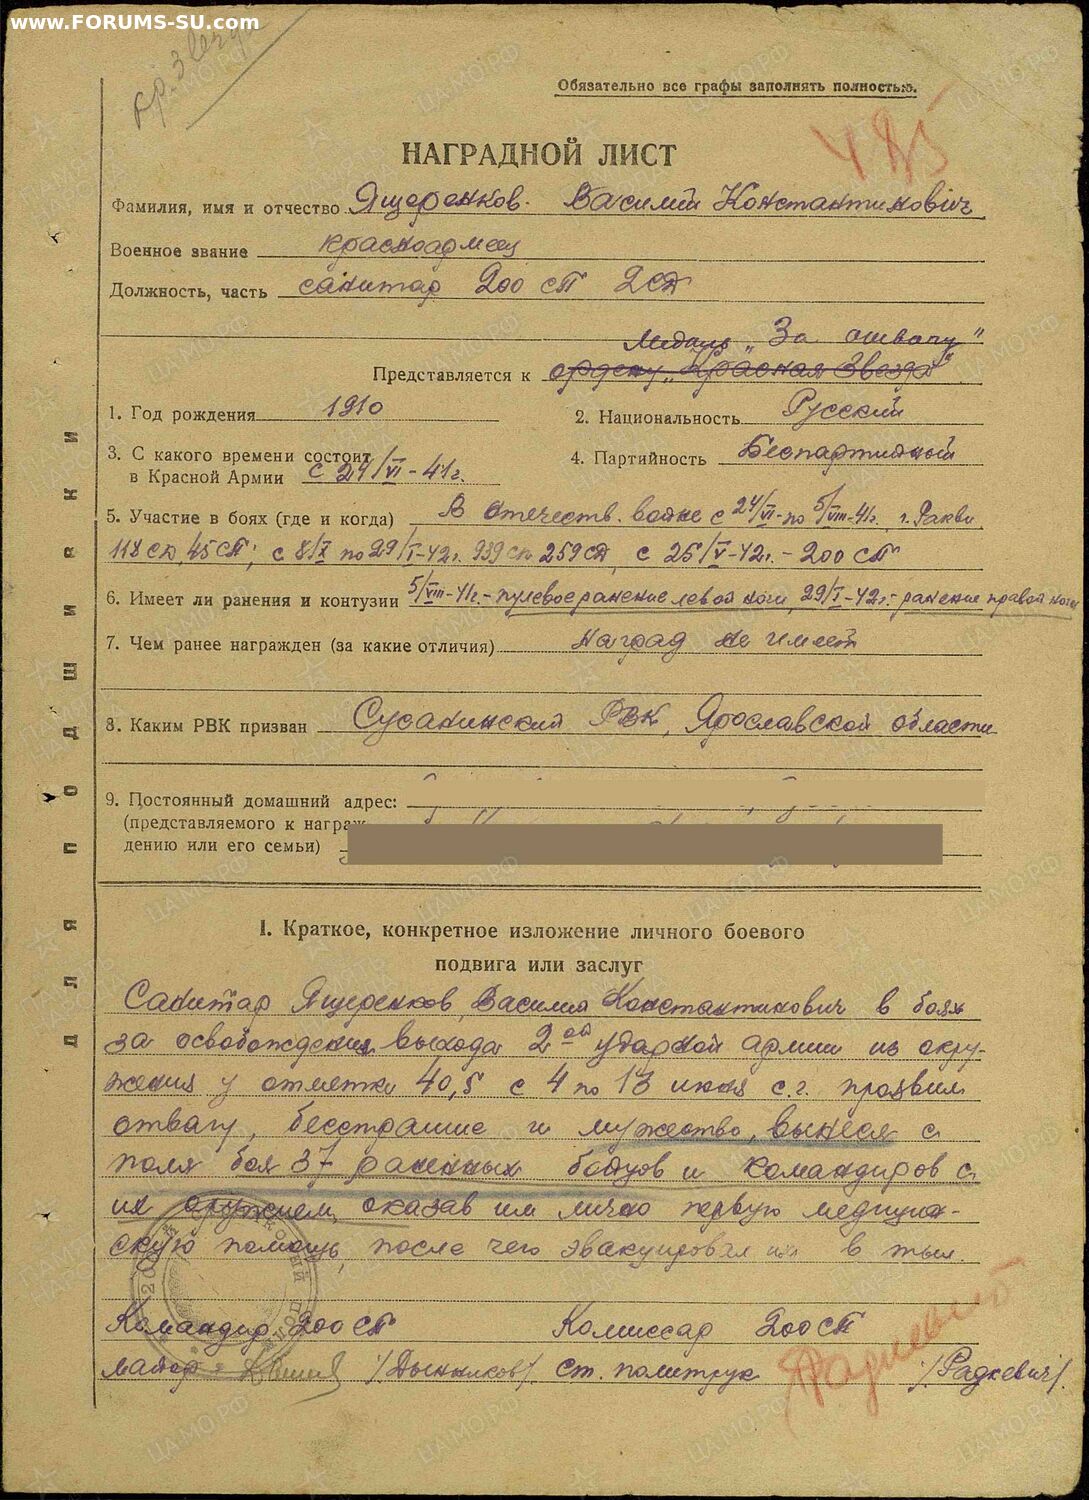 www.FORUMS-SU.com
Обязательно все графы заполнять полностью.
НАГРАДНОЙ ЛИСТ
Фамилия, имя и отчество Ящеренков Василий Константинович
Военное звание красноармеец
Должность, часть санитар 200 СП 2СД
Медаль „За отвагу"
Представляется к ордену „Красная Звезда"
1. Год рождения 1910
2. Национальность Русский
3. С какого времени состоит
в Красной Армии с 24/VI-41г.
4. Партийность Беспартийный
5. Участие в боях (где и когда) В отечеств. войне с 24/VI-по 5/VIII-41г. г. Ракви
118 СД, 45СП; с 8/X по 29/I-42г. 939 сп 259СД, с 25/V-42г.-200 СП
6. Имеет ли ранения и контузии 5/VIII-41г.-пулевое ранение левой ноги, 29/I-42г.-ранение правой ноги
7. Чем ранее награжден (за какие отличия) наград не имеет
8. Каким РВК призван Сусанинский РВК, Ярославской области
9. Постоянный домашний адрес:
(представляемого к награж-
дению или его семьи)
I. Краткое, конкретное изложение личного боевого
подвига или заслуг
Санитар Ященренков, Василий Константинович в боях
за освобождения выхода 2ой ударной армии из окру-
жения у отметки 40,5 с 4 по 13 июня с.г. проявил
отвагу, бесстрашие и мужество, вынеся с
поля боя 37 раненных бойцов и командиров с
их оружием, оказав им лично первую медицин-
скую помощь, после чего эвакуировал их в тыл.
Командир 200 СП
Комиссар 200СП
майор /Дынников/
ст. политрук Радкевич /Радкевич/
ДЛЯ ПОДШИВКИ